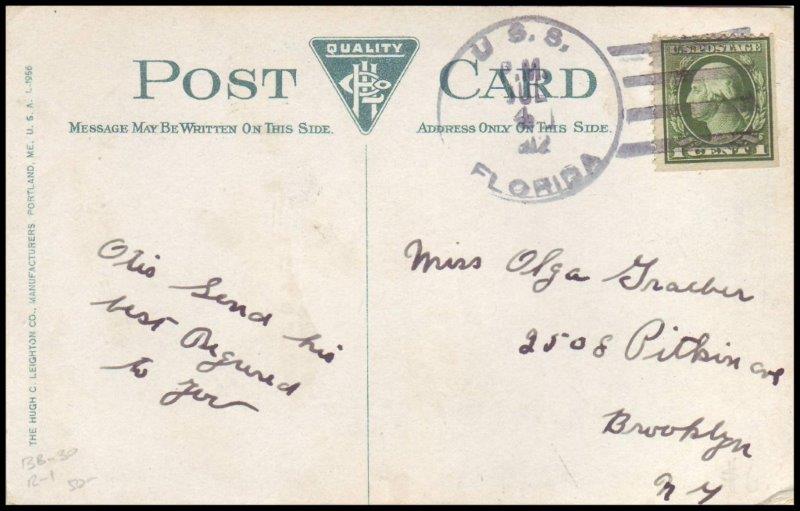 POST CARD
QUALITY
MESSAGE MAY BE WRITTEN ON THIS SIDE.
ADDRESS ONLY ON THIS SIDE.
THE HUGH C. LEIGHTON CO., MANUFACTURERS, PORTLAND, ME., U. S. A. L-1956
U. S. S.
JUL
4
FLORIDA
U.S. POSTAGE
1 CENT 1
Otis Send his
best Regured
to you
Miss Olga Graeber
2508 Pitkin ave
Brooklyn
N Y
BB-30
R-1 50-